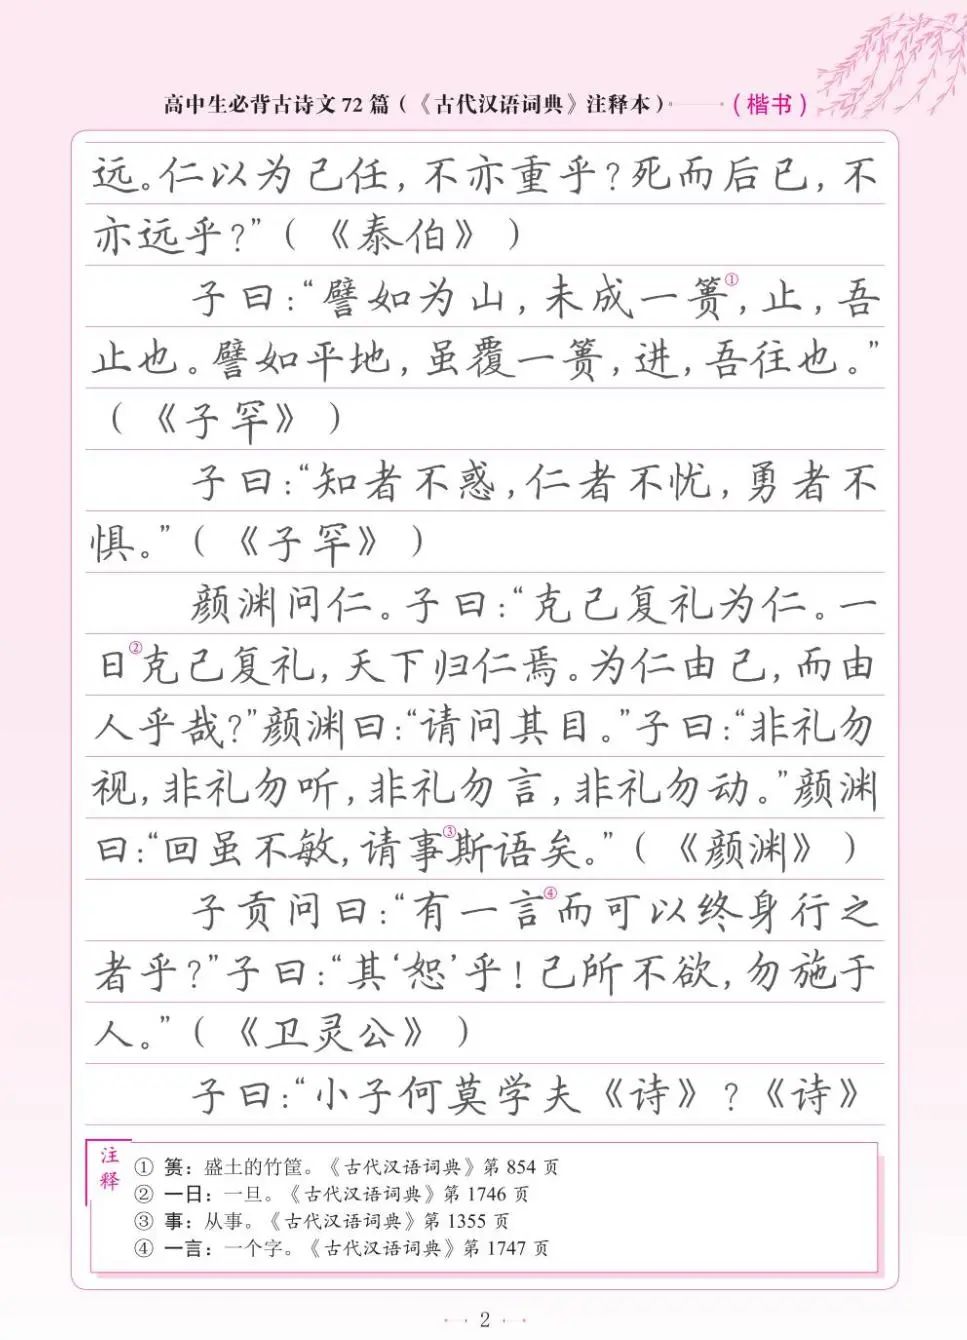 高中生必背古诗文72篇(《古代汉语词典》注释本) (楷书)
远。仁以为己任,不亦重乎?死而后已,不
亦远乎?”(《泰伯》)
子曰:“譬如为山,未成一篑①,止,吾
止也。譬如平地,虽覆一篑,进,吾往也。”
(《子罕》)
子曰:“知者不惑,仁者不忧,勇者不
惧。”(《子罕》)
颜渊问仁。子曰:“克己复礼为仁。一
日②克己复礼,天下归仁焉。为仁由己,而由
人乎哉?”颜渊曰:“请问其目。”子曰:“非礼勿
视,非礼勿听,非礼勿言,非礼勿动。”颜渊
曰:“回虽不敏,请事③斯语矣。”(《颜渊》)
子贡问曰:“有一言④而可以终身行之
者乎?”子曰:“其‘恕’乎!己所不欲,勿施于
人。”(《卫灵公》)
子曰:“小子何莫学夫《诗》?《诗》
注释
① 篑:盛土的竹筐。《古代汉语词典》第854页
② 一日:一旦。《古代汉语词典》第1746页
③ 事:从事。《古代汉语词典》第1355页
④ 一言:一个字。《古代汉语词典》第1747页
2